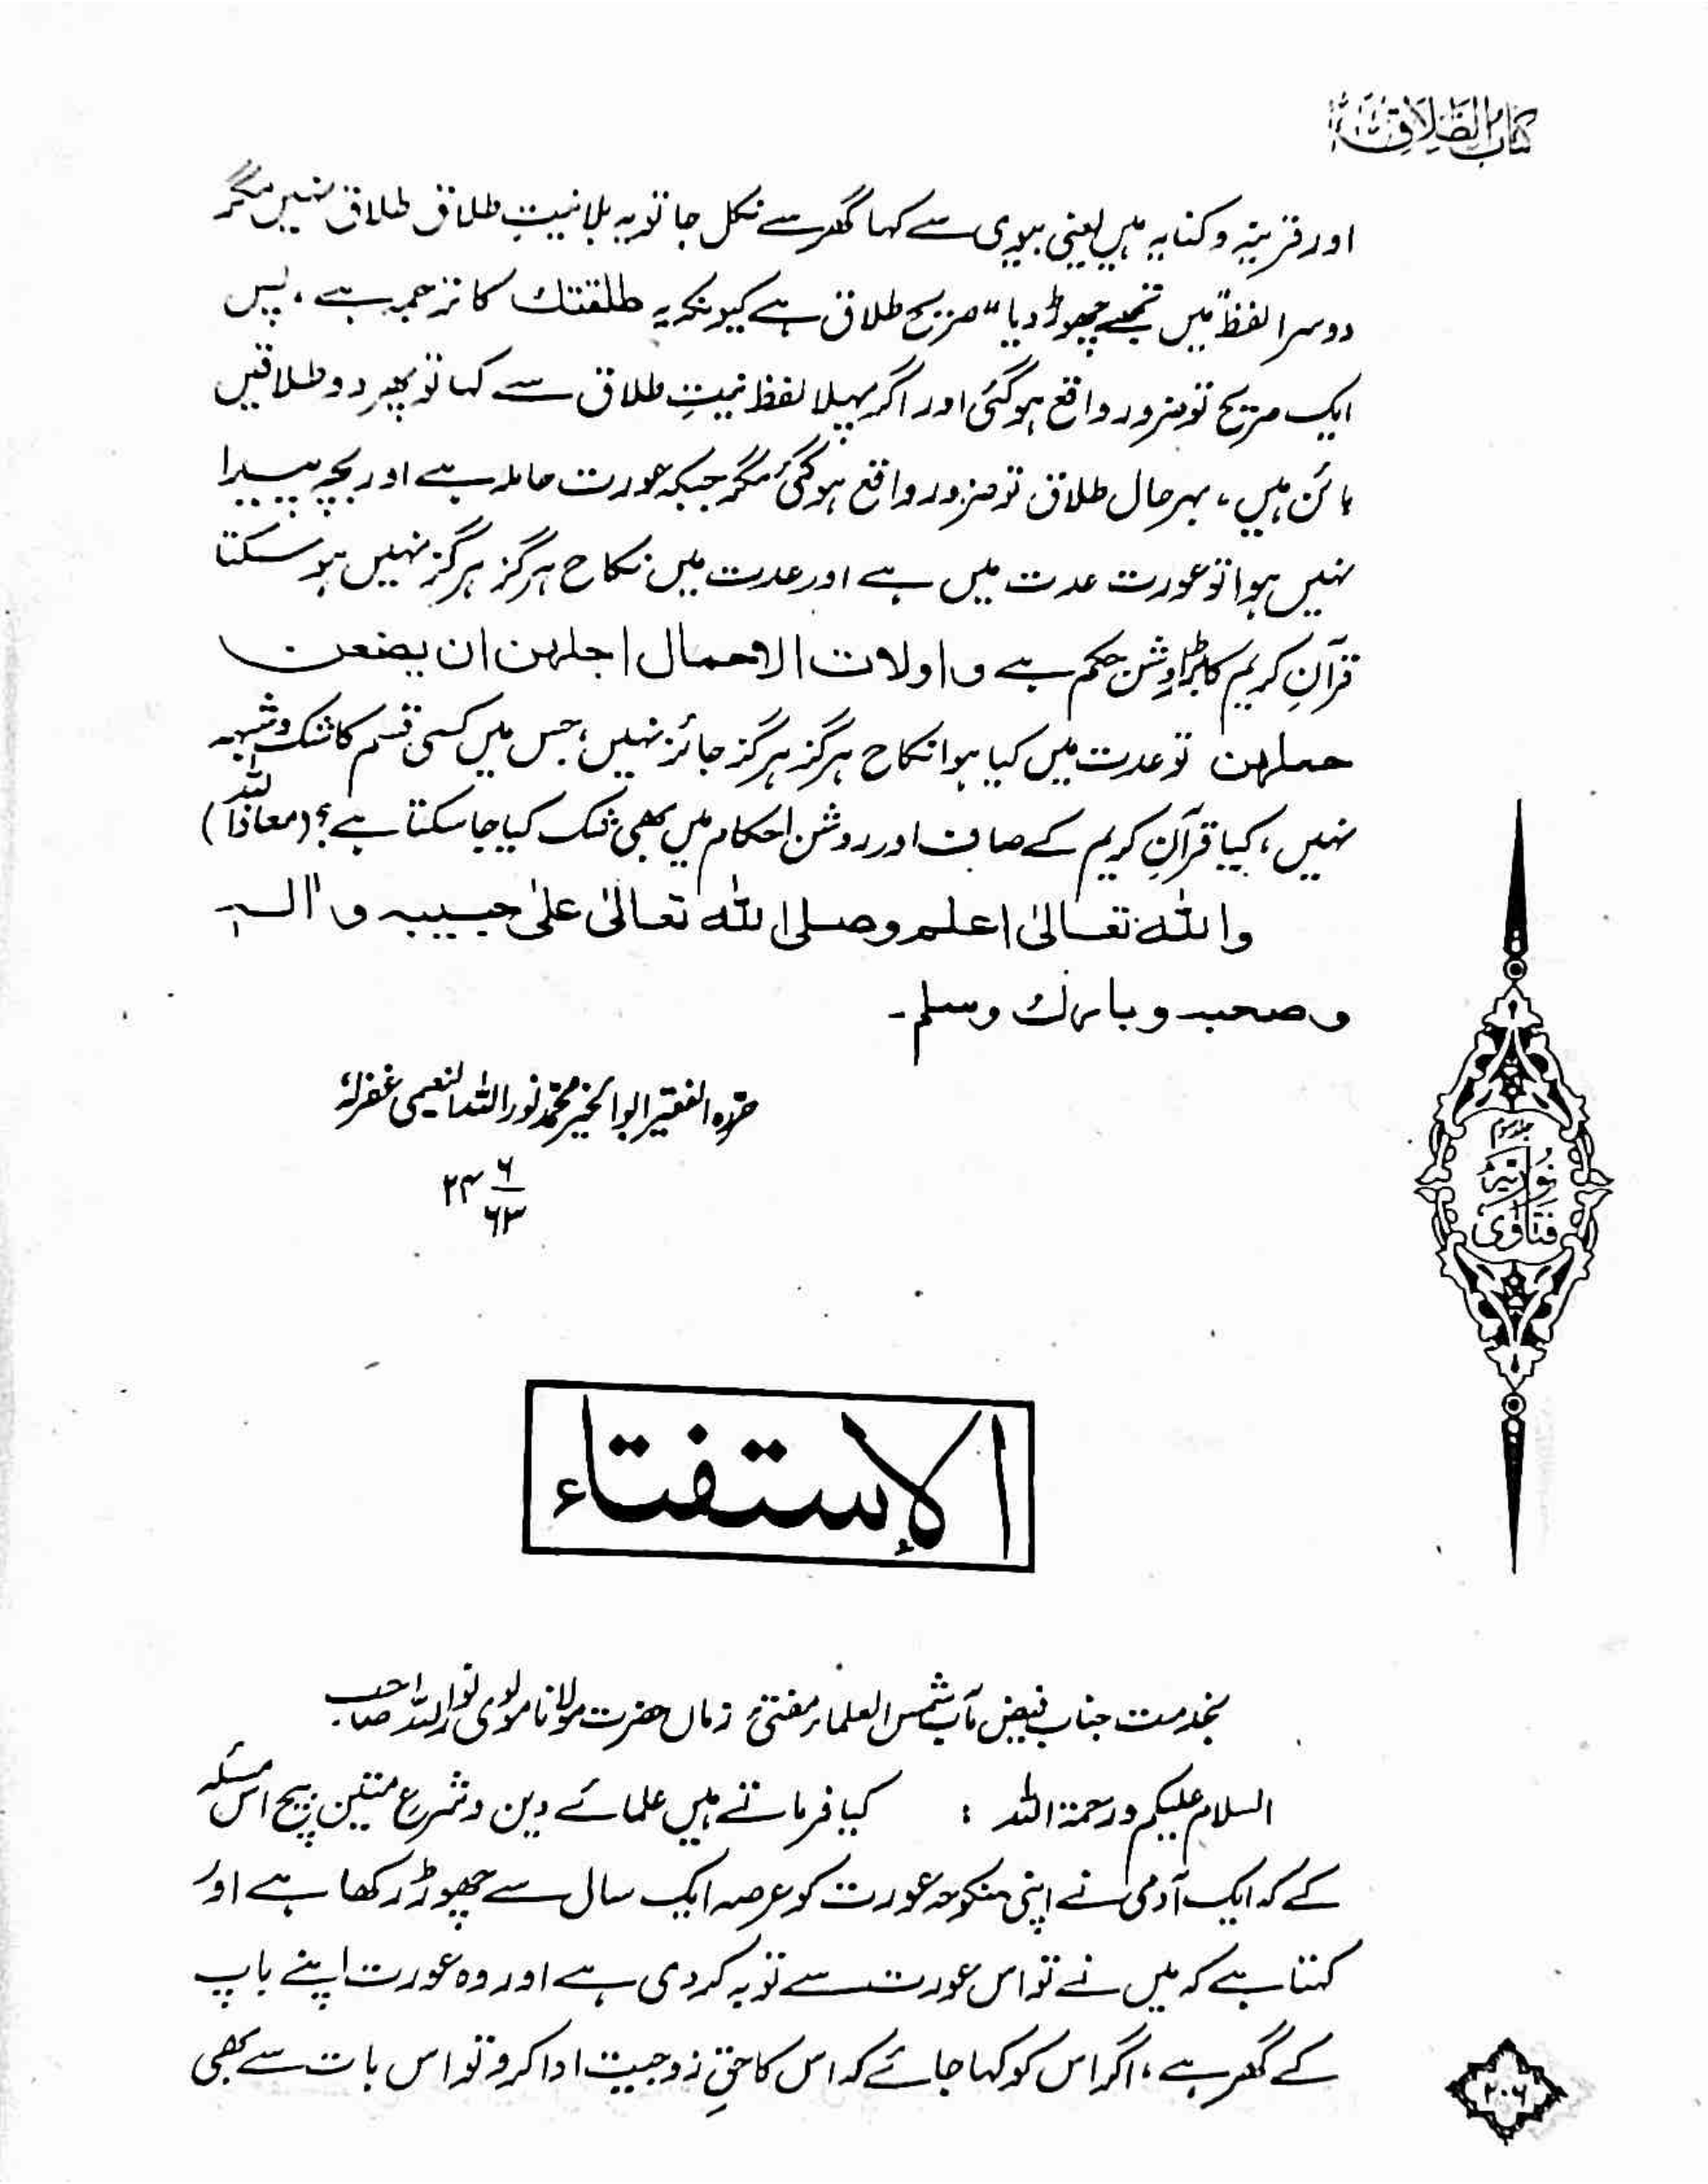 کتاب الطلاق
اور قرینہ و کنایہ میں یعنی بیوی سے کہا گھر سے نکل جا تو یہ بلا نیتِ طلاق طلاق نہیں مگر
دوسرا لفظ "میں تجھے چھوڑ دیا" صریح طلاق ہے کیونکہ یہ طلقتك کا ترجمہ ہے، پس
ایک صریح تو ضرور واقع ہو گئی اور اگر پہلا لفظ نیتِ طلاق سے کہا تو پھر دو طلاقیں
بائن ہیں، بہرحال طلاق تو ضرور واقع ہو گئی مگر جبکہ عورت حاملہ ہے اور بچہ پیدا
نہیں ہوا تو عورت عدت میں ہے اور عدت میں نکاح ہرگز ہرگز نہیں ہو سکتا
قرآنِ کریم کا بڑا روشن حکم ہے واولات الاحمال اجلهن ان يضعن
حملهن تو عدت میں کیا ہوا نکاح ہرگز ہرگز جائز نہیں، جس میں کسی قسم کا شک و شبہہ
نہیں، کیا قرآنِ کریم کے صاف اور روشن احکام میں بھی شک کیا جا سکتا ہے؟ (معاذ اللہ)
والله تعالىٰ اعلم وصلى الله تعالىٰ علىٰ حبيبه واٰله
وصحبه وبارك وسلم۔
حررہ الفقیر ابوالخیر محمد نور اللہ النعیمی غفرلہٗ
۲۴ ۶/۶۳
جلد سوم
نوریہ
فتاوی
الإستفتاء
بخدمت جناب فیض مآب شمس العلماء مفتیٔ زماں حضرت مولانا مولوی نور اللہ صاحب
السلام علیکم ورحمۃ اللہ : کیا فرماتے ہیں علمائے دین و شرع متین بیچ اس مسئلہ
کے کہ ایک آدمی نے اپنی منکوحہ عورت کو عرصہ ایک سال سے چھوڑ رکھا ہے اور
کہتا ہے کہ میں نے تو اس عورت سے توبہ کر دی ہے اور وہ عورت اپنے باپ
کے گھر ہے، اگر اس کو کہا جائے کہ اس کا حقِ زوجیت ادا کرو تو اس بات سے بھی
۲۰۶